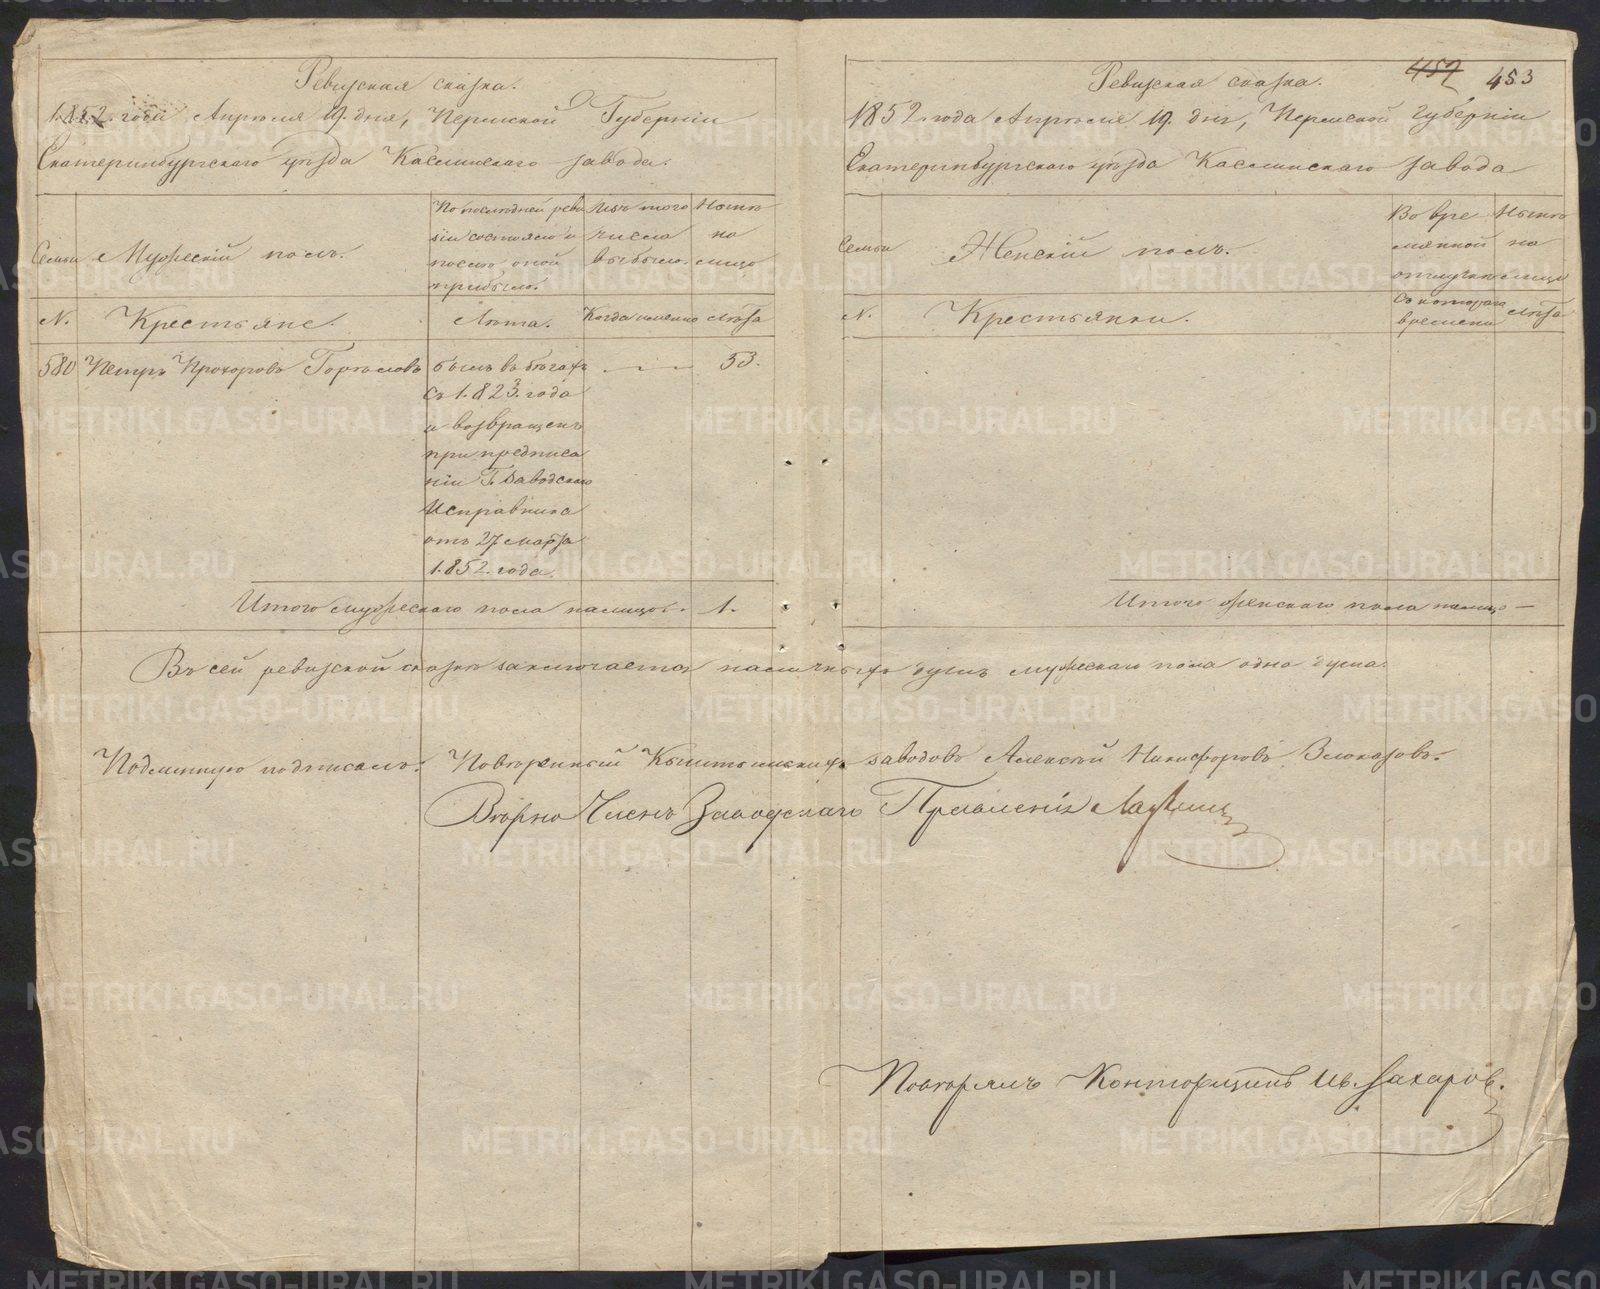 Ревизская сказка.
1852. года Апрѣля 19. дня, Пермской Губерніи
Екатеринбургскаго уѣзда Каслинскаго завода.
Семьи
Мужескій полъ.
По послѣдней реви
зіи состояло и
послѣ оной
прибыло.
Изъ того
числа
выбыло.
Нынѣ
на
лицо
N.
Крестьяне.
Лѣта.
Когда именно
Лѣта
580 Петръ Прохоровъ Горѣловъ
былъ въ бѣгахъ
съ 1823. года
и возвращенъ
при предписа
ніи Г. Заводскаго
Исправника
отъ 27 марта
1852. года.
53.
Итого мужескаго пола налицо. 1.
457 453
Ревизская сказка.
1852. года Апрѣля 19. дня, Пермской Губерніи
Екатеринбургскаго уѣзда Каслинскаго завода
Семьи
Женскій полъ.
Во вре
менной
отлучкѣ
Нынѣ
на
лицо
N.
Крестьянки.
Съ котораго
времени
Лѣта
Итого женскаго пола налицо —
Въ сей ревизской сказкѣ заключается наличныхъ душъ мужескаго пола одна душа.
Подлинную подписалъ: Повѣренный Кыштымскихъ заводовъ Алексѣй Никифоровъ Злоказовъ.
Вѣрно Членъ Заводскаго Правленія
Повѣрялъ Конторщикъ Ив. Захаровъ.
METRIKI.GASO-URAL.RU